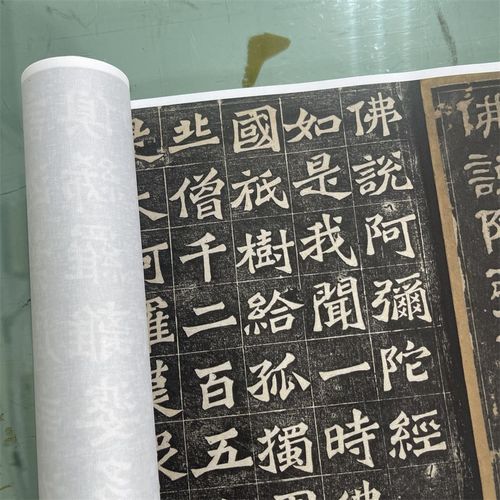 佛說阿
佛說阿彌陀經
如是我聞一時佛
國祇樹給孤獨
北僧千二百五
是大阿羅漢眾